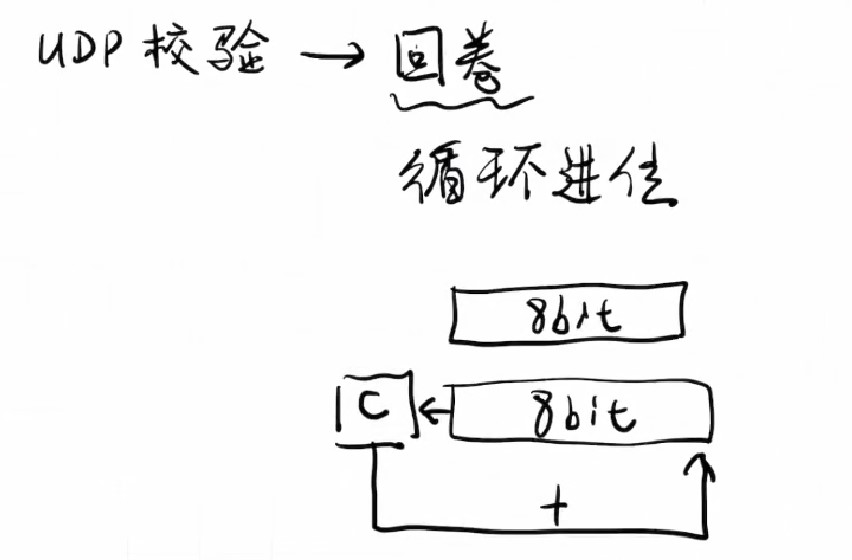 UDP 校验 → 回卷
循环进位
8bit
C ← 8bit
+